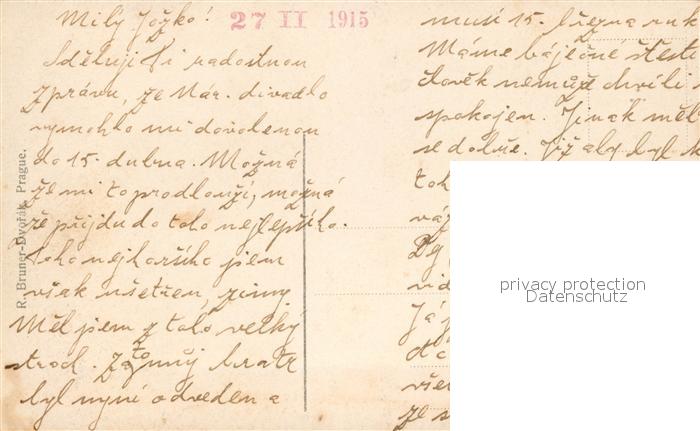 Milý Jožko!
27 II 1915
Sděluji Ti radostnou
zprávu, že Nár. divadlo
vymohlo mi dovolenou
do 15. dubna. Možná
že mi to prodlouží, možná
že přijdu do toho nejlepšího.
Toho nejhoršího jsem
však ušetřen, zimy.
Měl jsem z toho velký
strach. Za to můj bratr
byl nyní odveden a
musí 15. března ruk
Máme báječné štěstí
člověk nemůže chvíli
spokojen. Jinak měl
se dobře. Již aby byl
toh
váž
Dej
vid
Já j
dč
všer
že s
R. Bruner-Dvořák, Prague.
privacy protection
Datenschutz